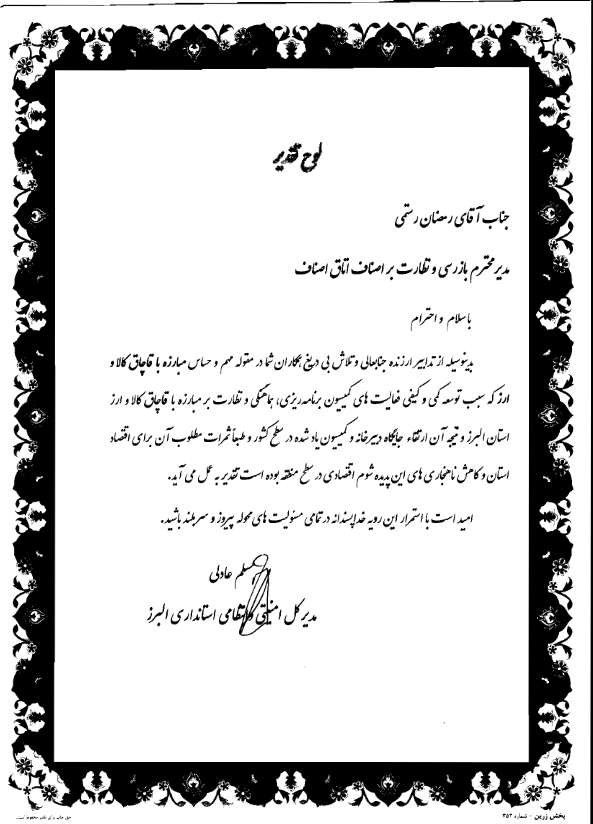 لوح تقدیر
جناب آقای رمضان رستمی
مدیر محترم بازرسی و نظارت بر اصناف اتاق اصناف
با سلام و احترام
بدینوسیله از تدابیر ارزنده جنابعالی و تلاش بی دریغ همکاران شما در مقوله مهم و حساس مبارزه با قاچاق کالا و
ارز که سبب توسعه کمی و کیفی فعالیت های کمیسیون برنامه ریزی، هماهنگی و نظارت بر مبارزه با قاچاق کالا و ارز
استان البرز و نتیجه آن ارتقاء جایگاه دبیرخانه و کمیسیون یاد شده در سطح کشور و طبعاً ثمرات مطلوب آن برای اقتصاد
استان و کاهش ناهنجاری های این پدیده شوم اقتصادی در سطح منطقه بوده است تقدیر به عمل می آید.
امید است با استمرار این رویه خداپسندانه در تمامی مسئولیت های محوله پیروز و سربلند باشید.
مسلم عادلی
مدیر کل امنیتی و انتظامی استانداری البرز
پخش زرین - شماره ۳۵۳
حق چاپ برای ناشر محفوظ است